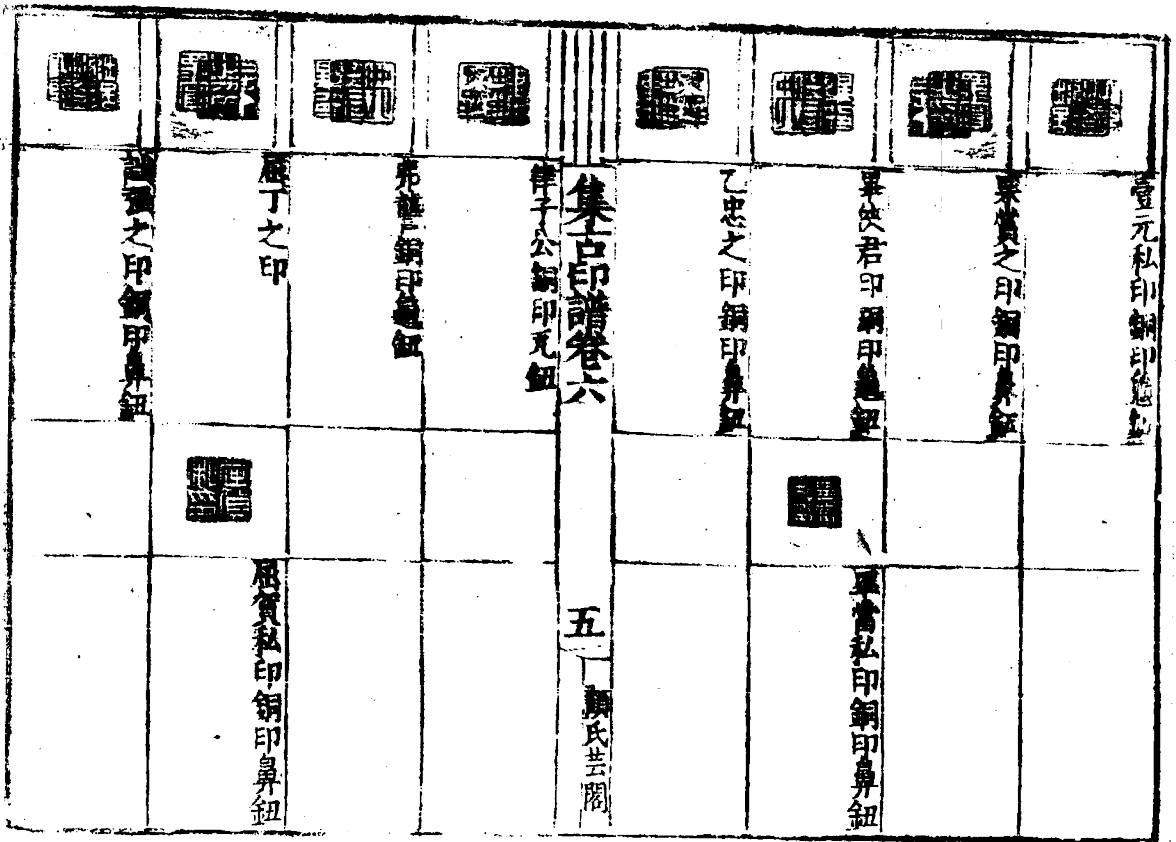 壹元私印銅印龜鈕
栗賞之印銅印鼻鈕
畢俠君印銅印龜鈕
畢當私印銅印鼻鈕
乙忠之印銅印鼻鈕
集古印譜卷六
五
顧氏芸閣
律子公銅印瓦鈕
弗銅印龜鈕
屈丁之印
屈賀私印銅印鼻鈕
彊之印銅印鼻鈕